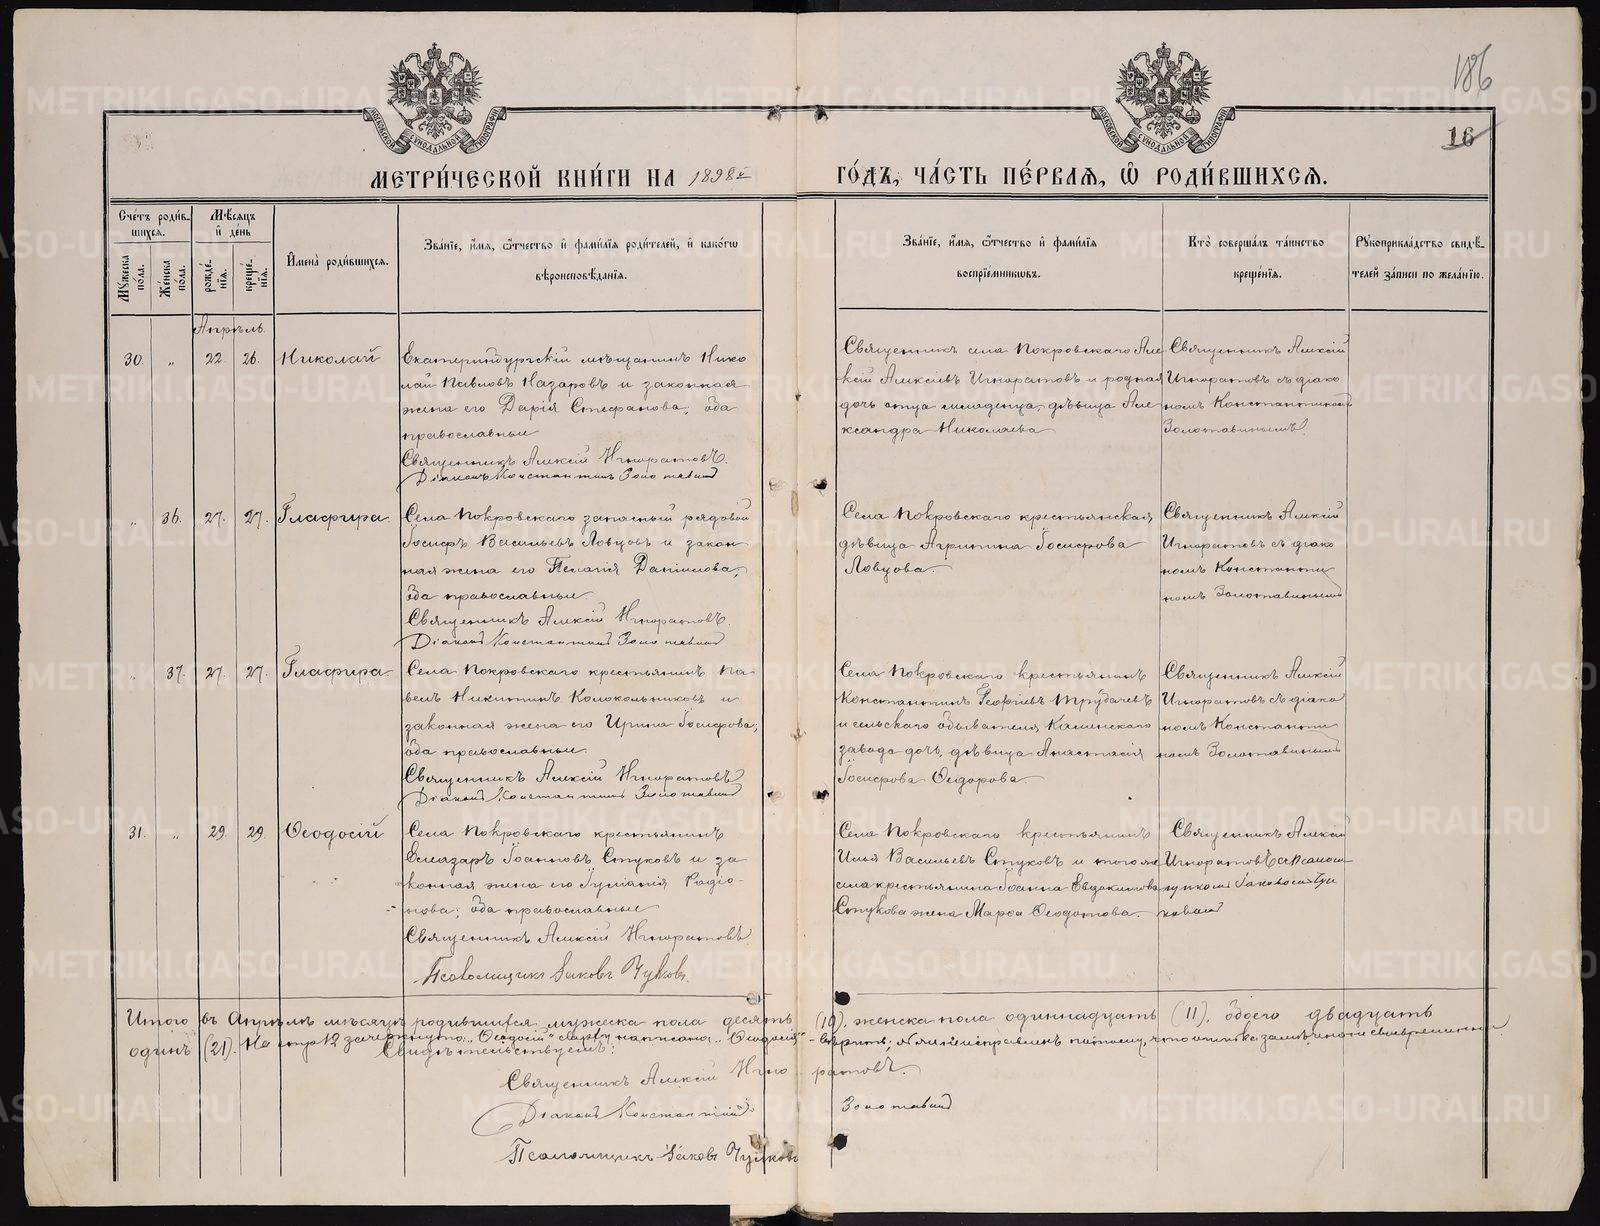 186
16
МЕТРИ́ЧЕСКОЙ КНИ́ГИ НА 1898й ГО́ДЪ, ЧА́СТЬ ПЕ́РВАЯ, Ѽ РОДИ́ВШИХСЯ.
Сче́тъ роди́в-
шихся.
Мѣ́сяцъ
и҆ де́нь
Му́жеска по́ла.
Же́нска по́ла.
рожде́-
нїя.
креще́-
нїя.
И҆мена̀ роди́вшихся.
Зва́нїе, и҆́мя, ѻ҆́тчество и҆ фамі́лїя роди́телей, и҆ како́гѡ
вѣроисповѣ́данїя.
Зва́нїе, и҆́мя, ѻ҆́тчество и҆ фамі́лїя
воспрїе́мникѡвъ.
Кто̀ соверша́лъ та́инство
креще́нїя.
Рꙋкоприкла́дство свидѣ́-
телей за́писи по жела́нїю.
Апрѣль.
30. „ 22. 26. Николай
Екатеринбургскій мѣщанинъ Нико
лай Павловъ Назаровъ и законная
жена его Дарія Стефанова, оба
православные
Священникъ Алексій Игноратовъ.
Діаконъ Константинъ Золотавинъ
Священникъ села Покровскаго Але
ксій Алексіевъ Игноратовъ и родная
дочь отца младенца, дѣвица Але
ксандра Николаева
Священникъ Алексій
Игноратовъ съ діако
номъ Константиномъ
Золотавинымъ.
„ 36. 27. 27. Глафира.
Села Покровскаго запасный рядовой
Іосифъ Васильевъ Ловцовъ и закон
ная жена его Пелагія Даніилова,
оба православные.
Священникъ Алексій Игноратовъ.
Діаконъ Константинъ Золотавинъ
Села Покровскаго крестьянская
дѣвица Агрипина Іосифова
Ловцова.
Священникъ Алексій
Игноратовъ съ діако
номъ Константи
номъ Золотавинымъ
„ 37. 27. 27. Глафира.
Села Покровскаго крестьянинъ Па
велъ Никитинъ Колокольниковъ и
законная жена его Ирина Іосифова;
оба православные.
Священникъ Алексій Игноратовъ
Діаконъ Константинъ Золотавинъ
Села Покровскаго крестьянинъ
Константинъ Георгіевъ Трубачевъ
и сельскаго обывателя Каменскаго
завода дочь, дѣвица Анастасія
Іосифова Ѳедорова.
Священникъ Алексій
Игноратовъ съ діако
номъ Константи
номъ Золотавинымъ
31. „ 29. 29. Ѳеодосій
Села Покровскаго крестьянинъ
Елеазаръ Іоанновъ Стуковъ и за
конная жена его Іуліанія Родіо-
нова; оба православные
Священникъ Алексій Игноратовъ
Псаломщикъ Іаковъ Чулковъ.
Села Покровскаго крестьянинъ
Илья Васильевъ Стуковъ и того же
села крестьянина Іоанна Евдокимова
Стукова жена Марѳа Ѳеодотова.
Священникъ Алексій
Игноратовъ съ псалом
щикомъ Іаковомъ Чул
ковымъ
Итого въ Апрѣлѣ мѣсяцѣ родившихся: мужеска пола десять (10), женска пола одиннадцать (11), обоего двадцать
одинъ (21). На стр. 12 зачеркнуто: „Ѳеодосій“ сверху написано: „Ѳеодосія“ – вѣрить;
Свидѣтельствуемъ:
Священникъ Алексій Игноратовъ.
Діаконъ Константинъ Золотавинъ
Псаломщикъ Іаковъ Чулковъ
METRIKI.GASO-URAL.RU